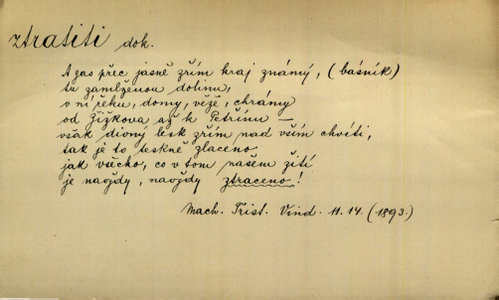 ztratiti dok.
A zas přec jasně zřím kraj známý, (básník)
tu zamlženou dolinu,
v ní řeku, domy, věže, chrámy
od Žižkova až k Petřínu —
však divný lesk zřím nad vším chvíti,
tak je to teskně zlaceno
jak všecko, co v tom našem žití
je navždy, navždy ztraceno!
Mach. Trist. Vind. 11.14. (1893.)